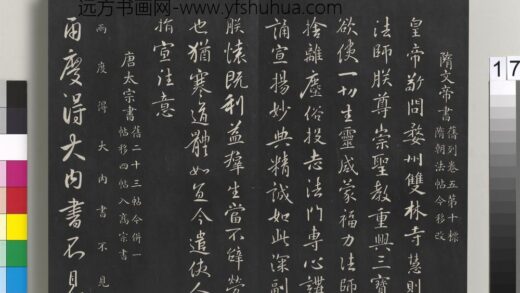 远方书画网-www.yfshuhua.com
17
隋文帝書 舊列卷五第十標
隋朝法帖今移改
皇帝敬問婺州雙林寺慧則
法師朕尊崇聖教重興三寶
欲使一切生靈咸蒙福力法師
捨離塵俗投志法門專心講
誦宣揚妙典精誠如此深副
朕懷既利益群生當不辭勞
也猶寒道體如宜今遣使人
指宣往意
唐太宗書 舊二十三帖今併一
帖移四帖入高宗書
兩度得大內書不見
兩度得大內書不見